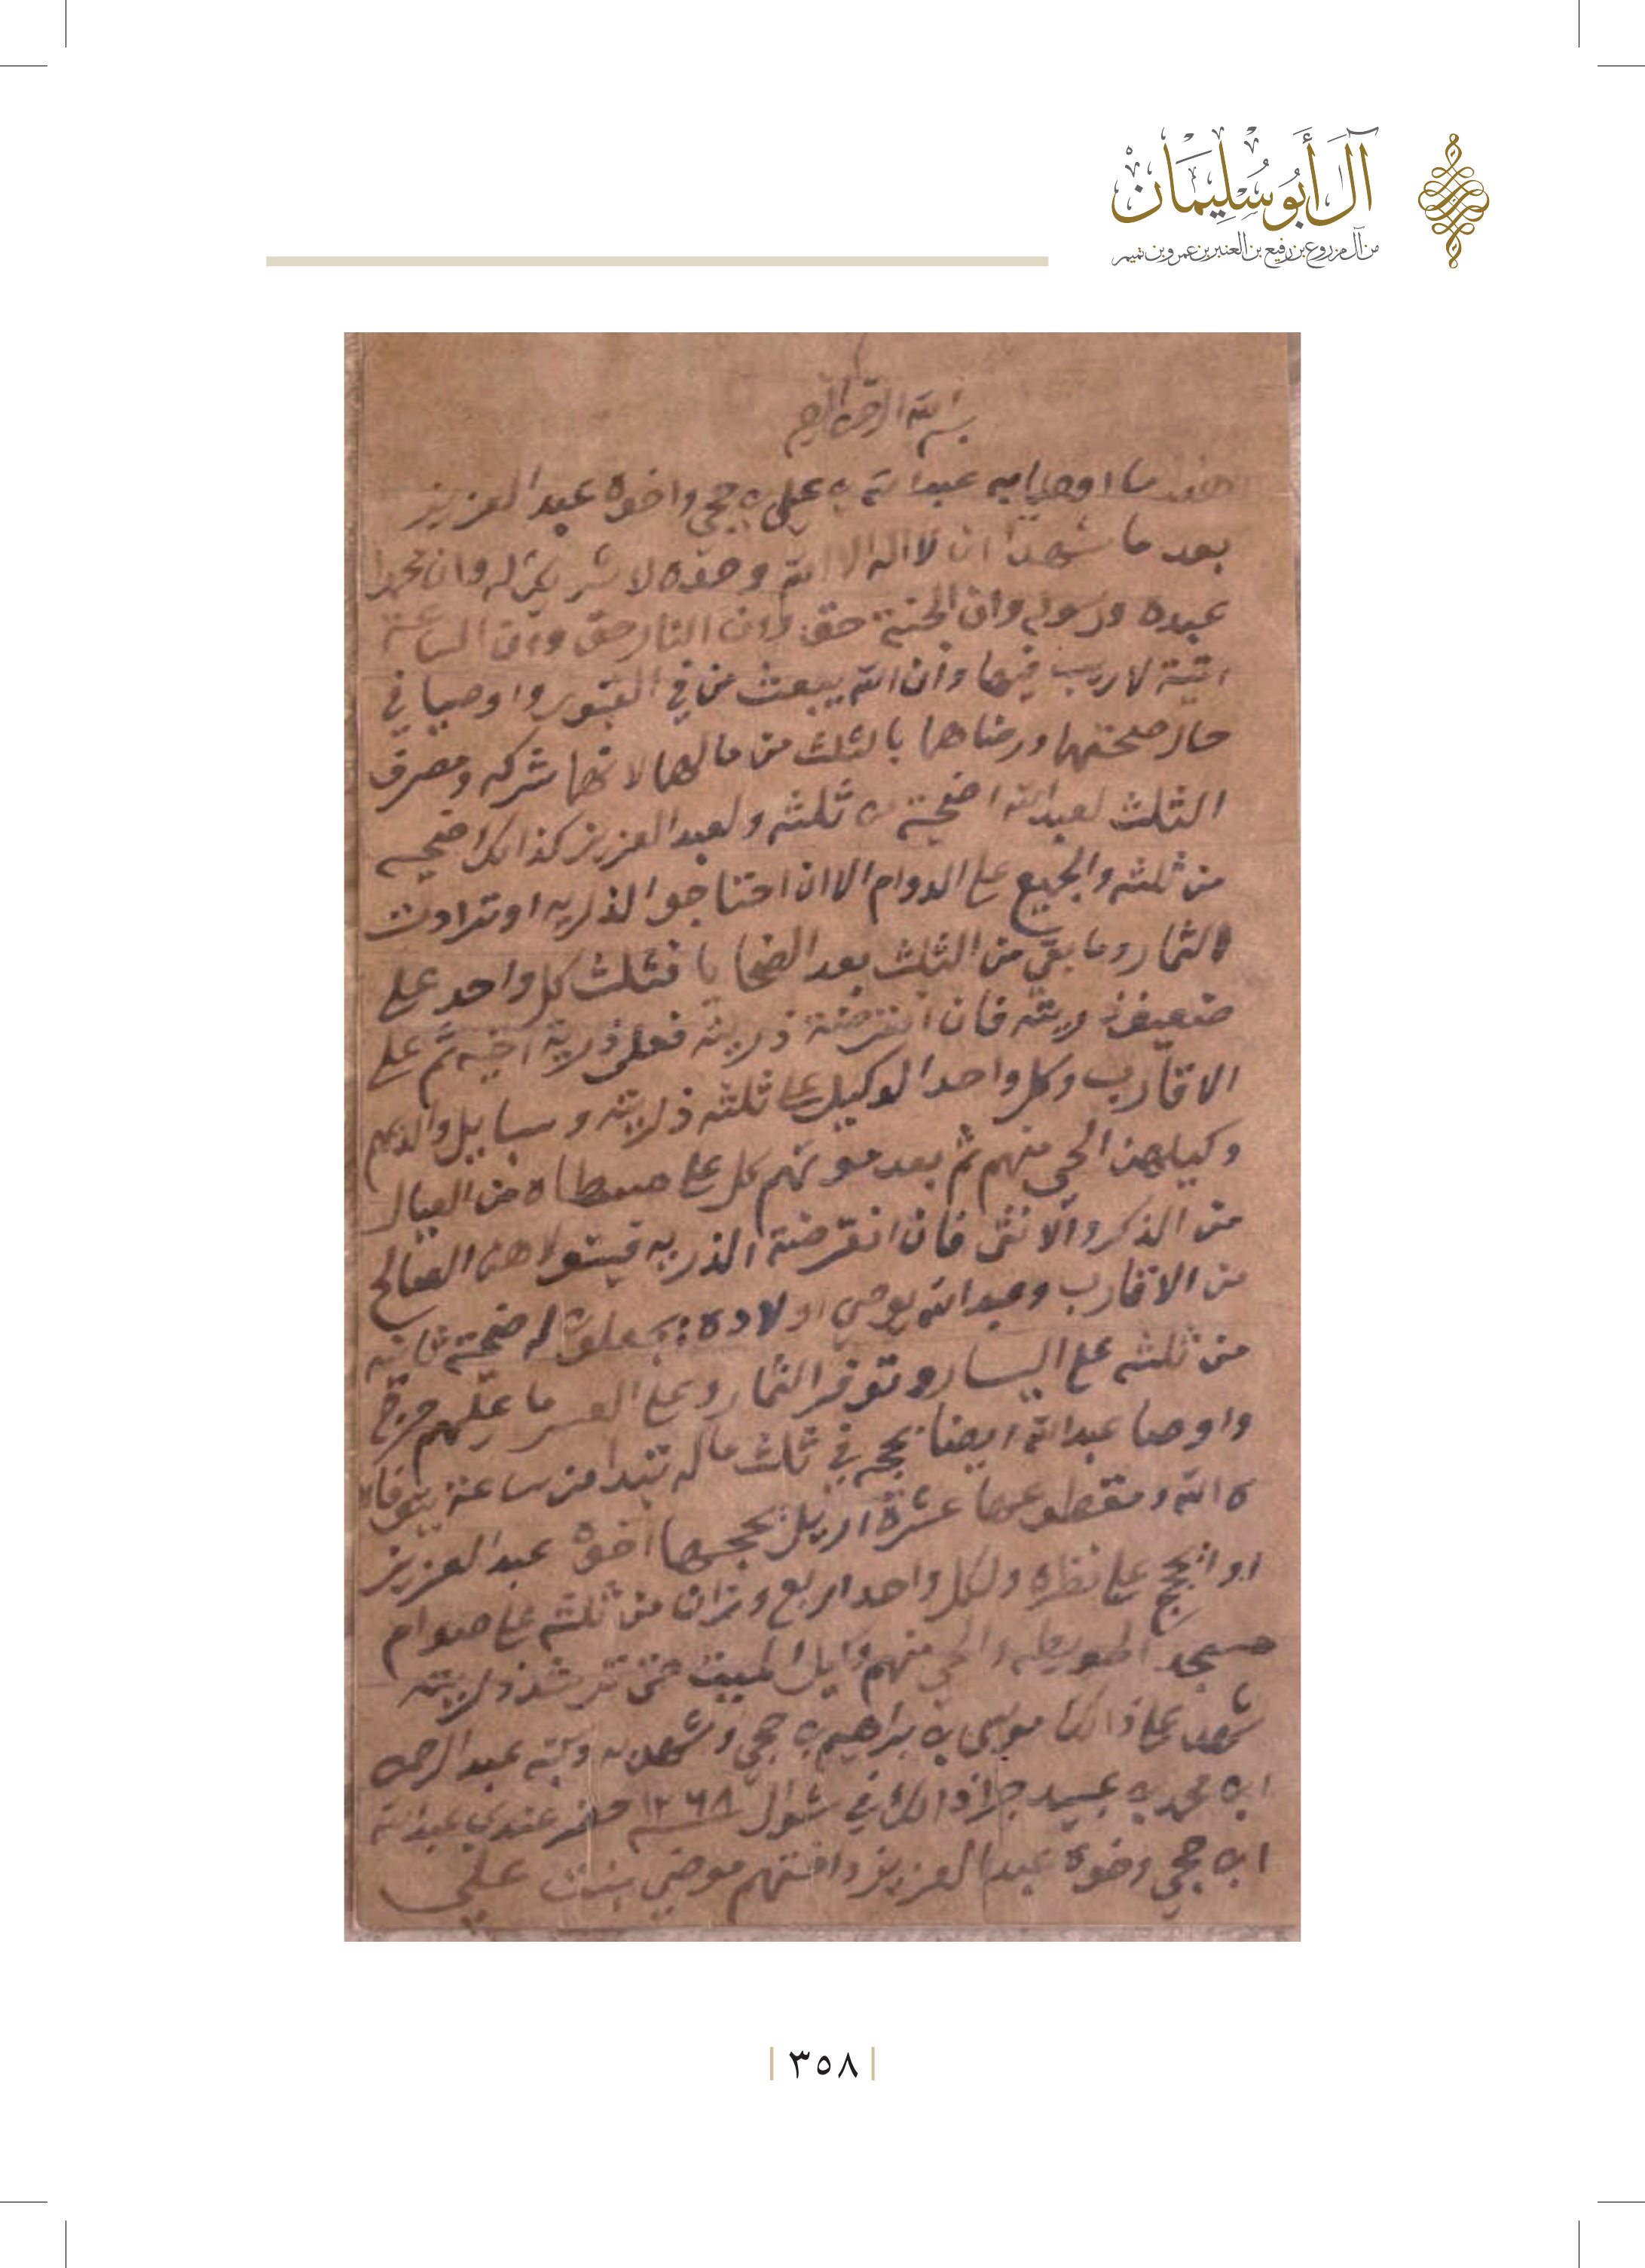 آل أبو سليمان
من آل مزروع بن رفيع بن العنبر بن عمرو بن تميم
بسم الله الرحمن الرحيم
هذا ما اوصا به عبدالله بن علي بن حجي واخوه عبدالعزيز
بعد ما شهدا ان لا اله الا الله وحده لا شريك له وان محمدا
عبده ورسوله وان الجنة حق وان النار حق وان الساعة
اتية لا ريب فيها وان الله يبعث من في القبور واوصيا في
حال صحتهما ورضاهما بالثلث من مالهما لانهما شركه ومصرف
الثلث لعبدالله اضحية من ثلثه ولعبدالعزيز كذالك اضحيه
من ثلثه والجميع على الدوام الا ان احتاجوا الذريه او تردات
الثمار وما بقي من الثلث بعد الضحايا فثلث كل واحد على
ضعيف ذريته فان انقرضة ذريته فعلى ذرية اخيه ثم على
الاقارب وكل واحد الوكيل على ثلثه ذريته وسبايل والديهم
وكيلهن الحي منهم ثم بعد موتهم كل على من العيال
من الذكر والانثى فان انقرضة الذريه فيتولاهن الصالح
من الاقارب وعبدالله يوصي اولاده يجعلون له ضحية ثانيه
من ثلثه على اليسار وتوفر الثمار وعلى العسر ما عليهم حرج
واوصا عبدالله ايضا بحجه في ثلث ماله تبدا من ساعة يتوفا
ه الله ومقطوعها عشرة اريل يحجها اخوه عبدالعزيز
او الحج على نظره ولكل واحد اربع وزان من ثلثه على صوام
مسجد والحي منهم وكيل الميت حتى ترشد ذريته
شهد على ذالك موسى بن براهيم بن حجي وشهد به وكتبه عبدالرحمن
ابن محمد بن عبيد جرا ذالك في شوال سنة ١٢٦٨ حضر عندي عبدالله
ابن حجي وخوه عبدالعزيز واختهم موضي بنت علي
٣٥٨